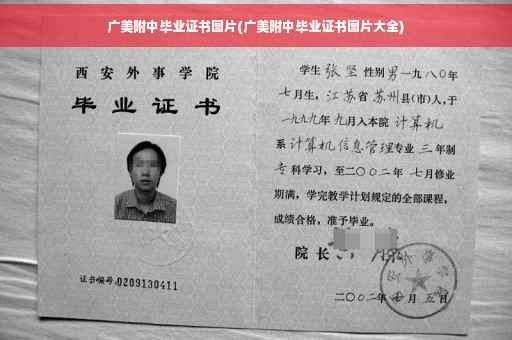 广美附中毕业证书图片(广美附中毕业证书图片大全)
西安外事学院
毕业证书
证书编号:0209130411
学生 张坚 性别 男 一九八〇年
七月生，江苏省 苏州县(市)人,于
一九九九年 九月入本院 计算机
系 计算机信息管理专业 三 年制
专科学习，至二〇〇二年 七月修业
期满，学完教学计划规定的全部课程，
成绩合格，准予毕业。
院长
二〇〇二年 月 五日